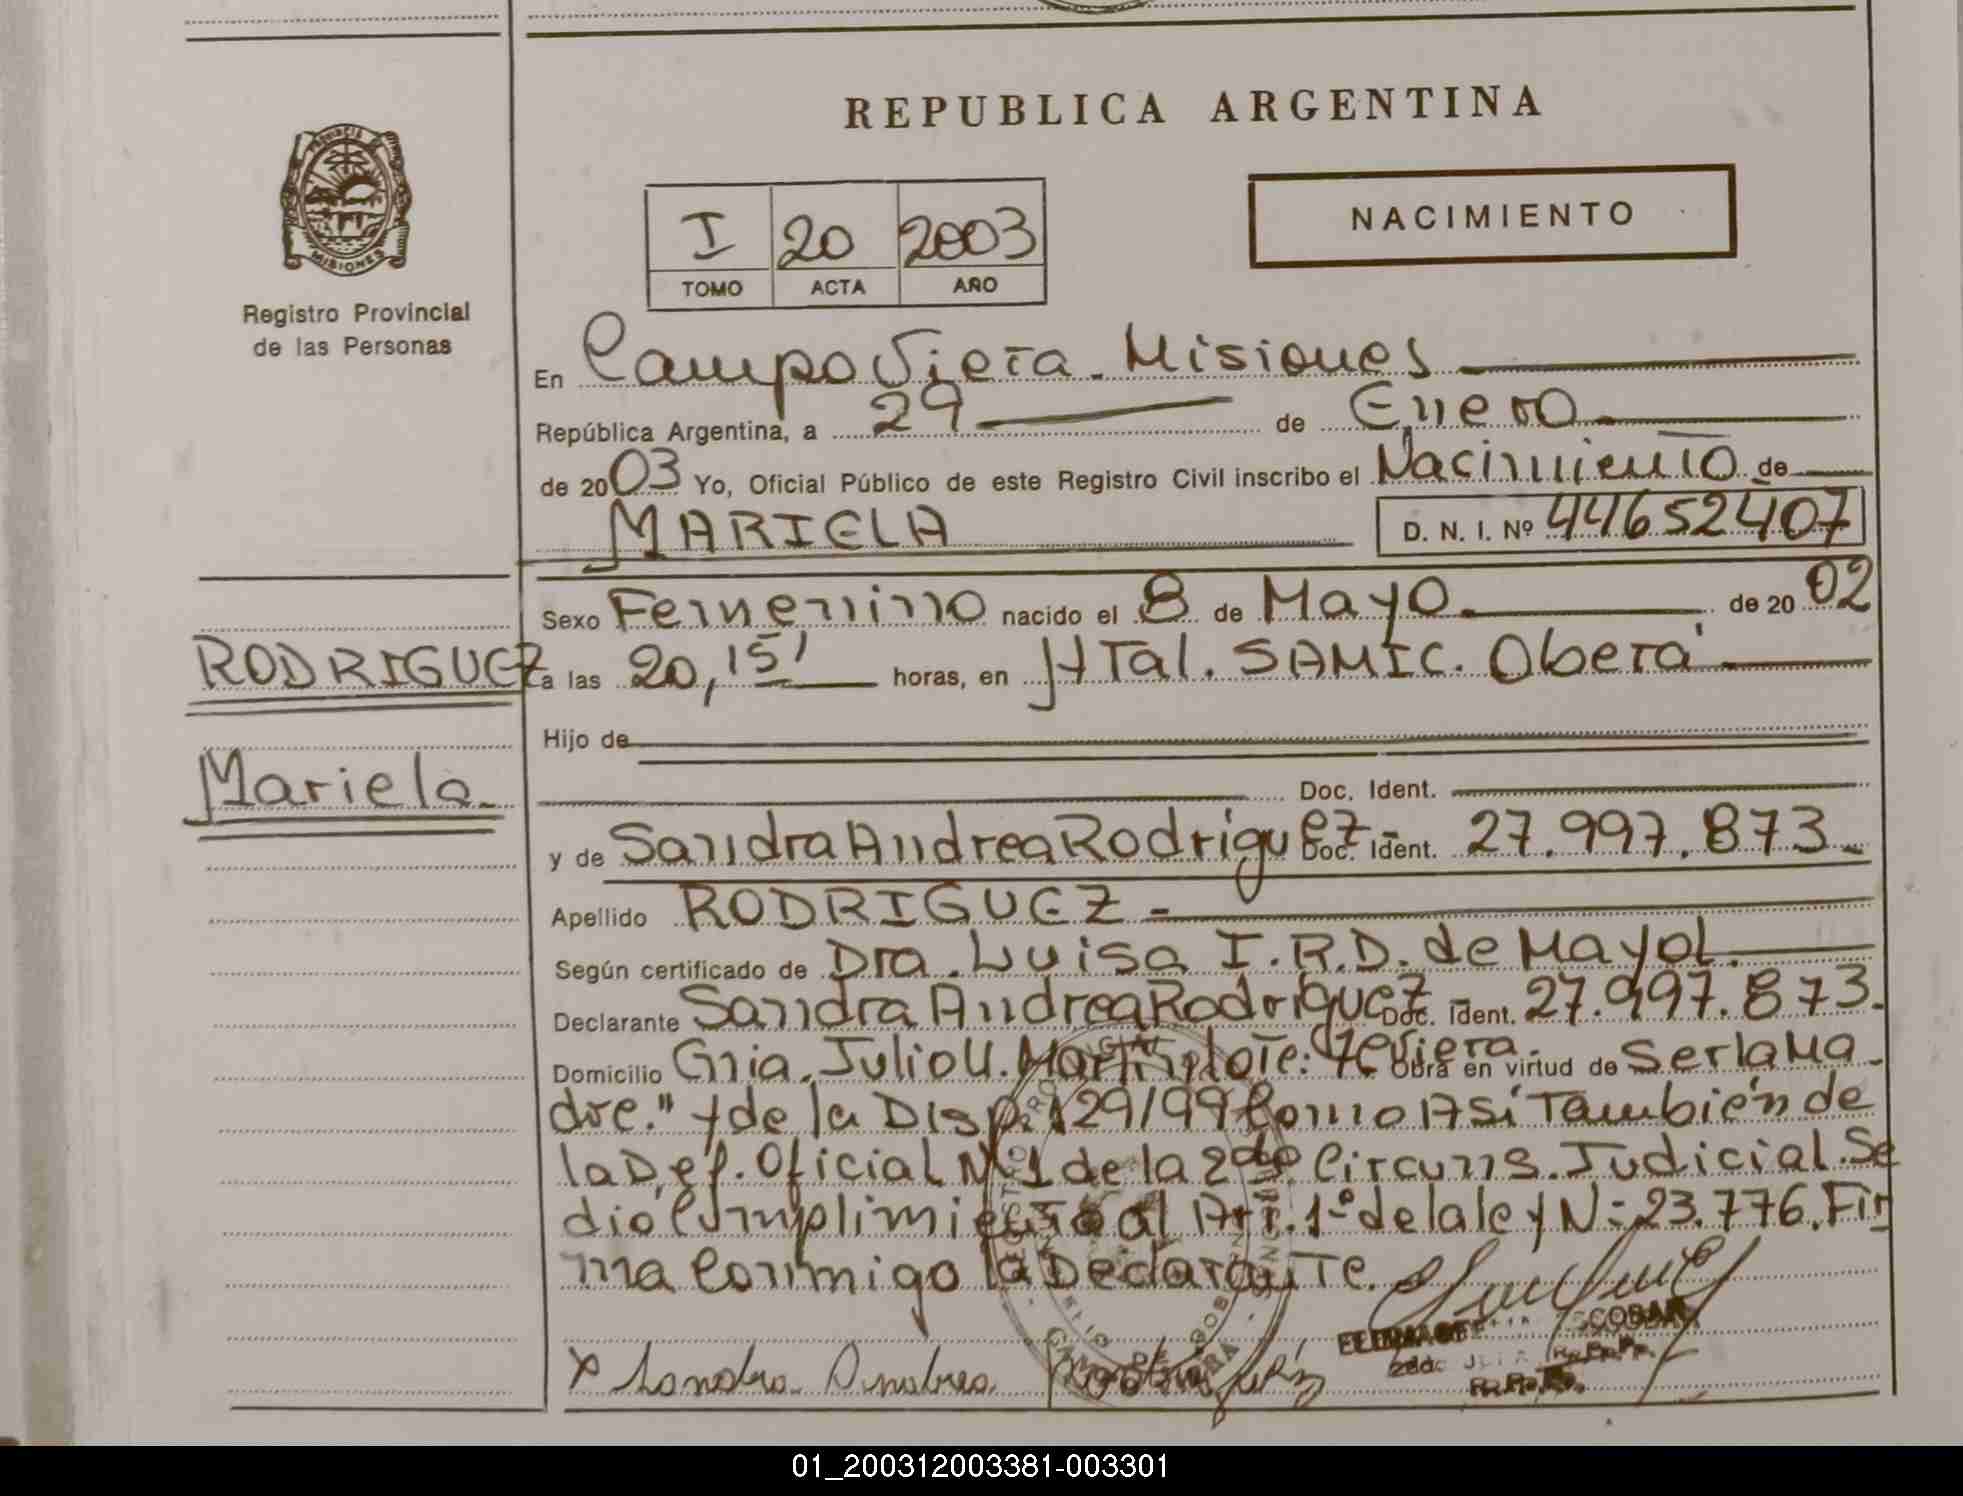 REPUBLICA ARGENTINA
PROVINCIA DE MISIONES
Registro Provincial
de las Personas
NACIMIENTO
I 20 2003
TOMO ACTA AÑO
En Campo Viera. Misiones
República Argentina, a 29 de Enero
de 2003 Yo, Oficial Público de este Registro Civil inscribo el Nacimiento de
MARIELA D. N. I. Nº 44652407
Sexo Femenino nacido el 8 de Mayo. de 2002
RODRIGUEZ
a las 20,15' horas, en HTal. SAMIC. Oberá
Hijo de
Mariela.
Doc. Ident.
y de Sandra Andrea Rodriguez- Doc. Ident. 27.997.873-
Apellido RODRIGUEZ -
Según certificado de Dra. Luisa I.R.D. de Mayol.
Declarante Sandra Andrea Rodriguez Doc. Ident. 27.997.873.
Domicilio Cnia. Julio U. Martin lote: 7 CViera. Obra en virtud de Ser la Ma
dre." y de la Disp. 129/99 Como Asi También de
la Def. Oficial Nº 1 de la 2da Circuns. Judicial. Se
dio Cumplimiento al Art. 1º de la ley N: 23.776. Fir
ma Conmigo la Declarante.
x Sandra Andrea Rodriguez
ESCOBAR
01_200312003381-003301